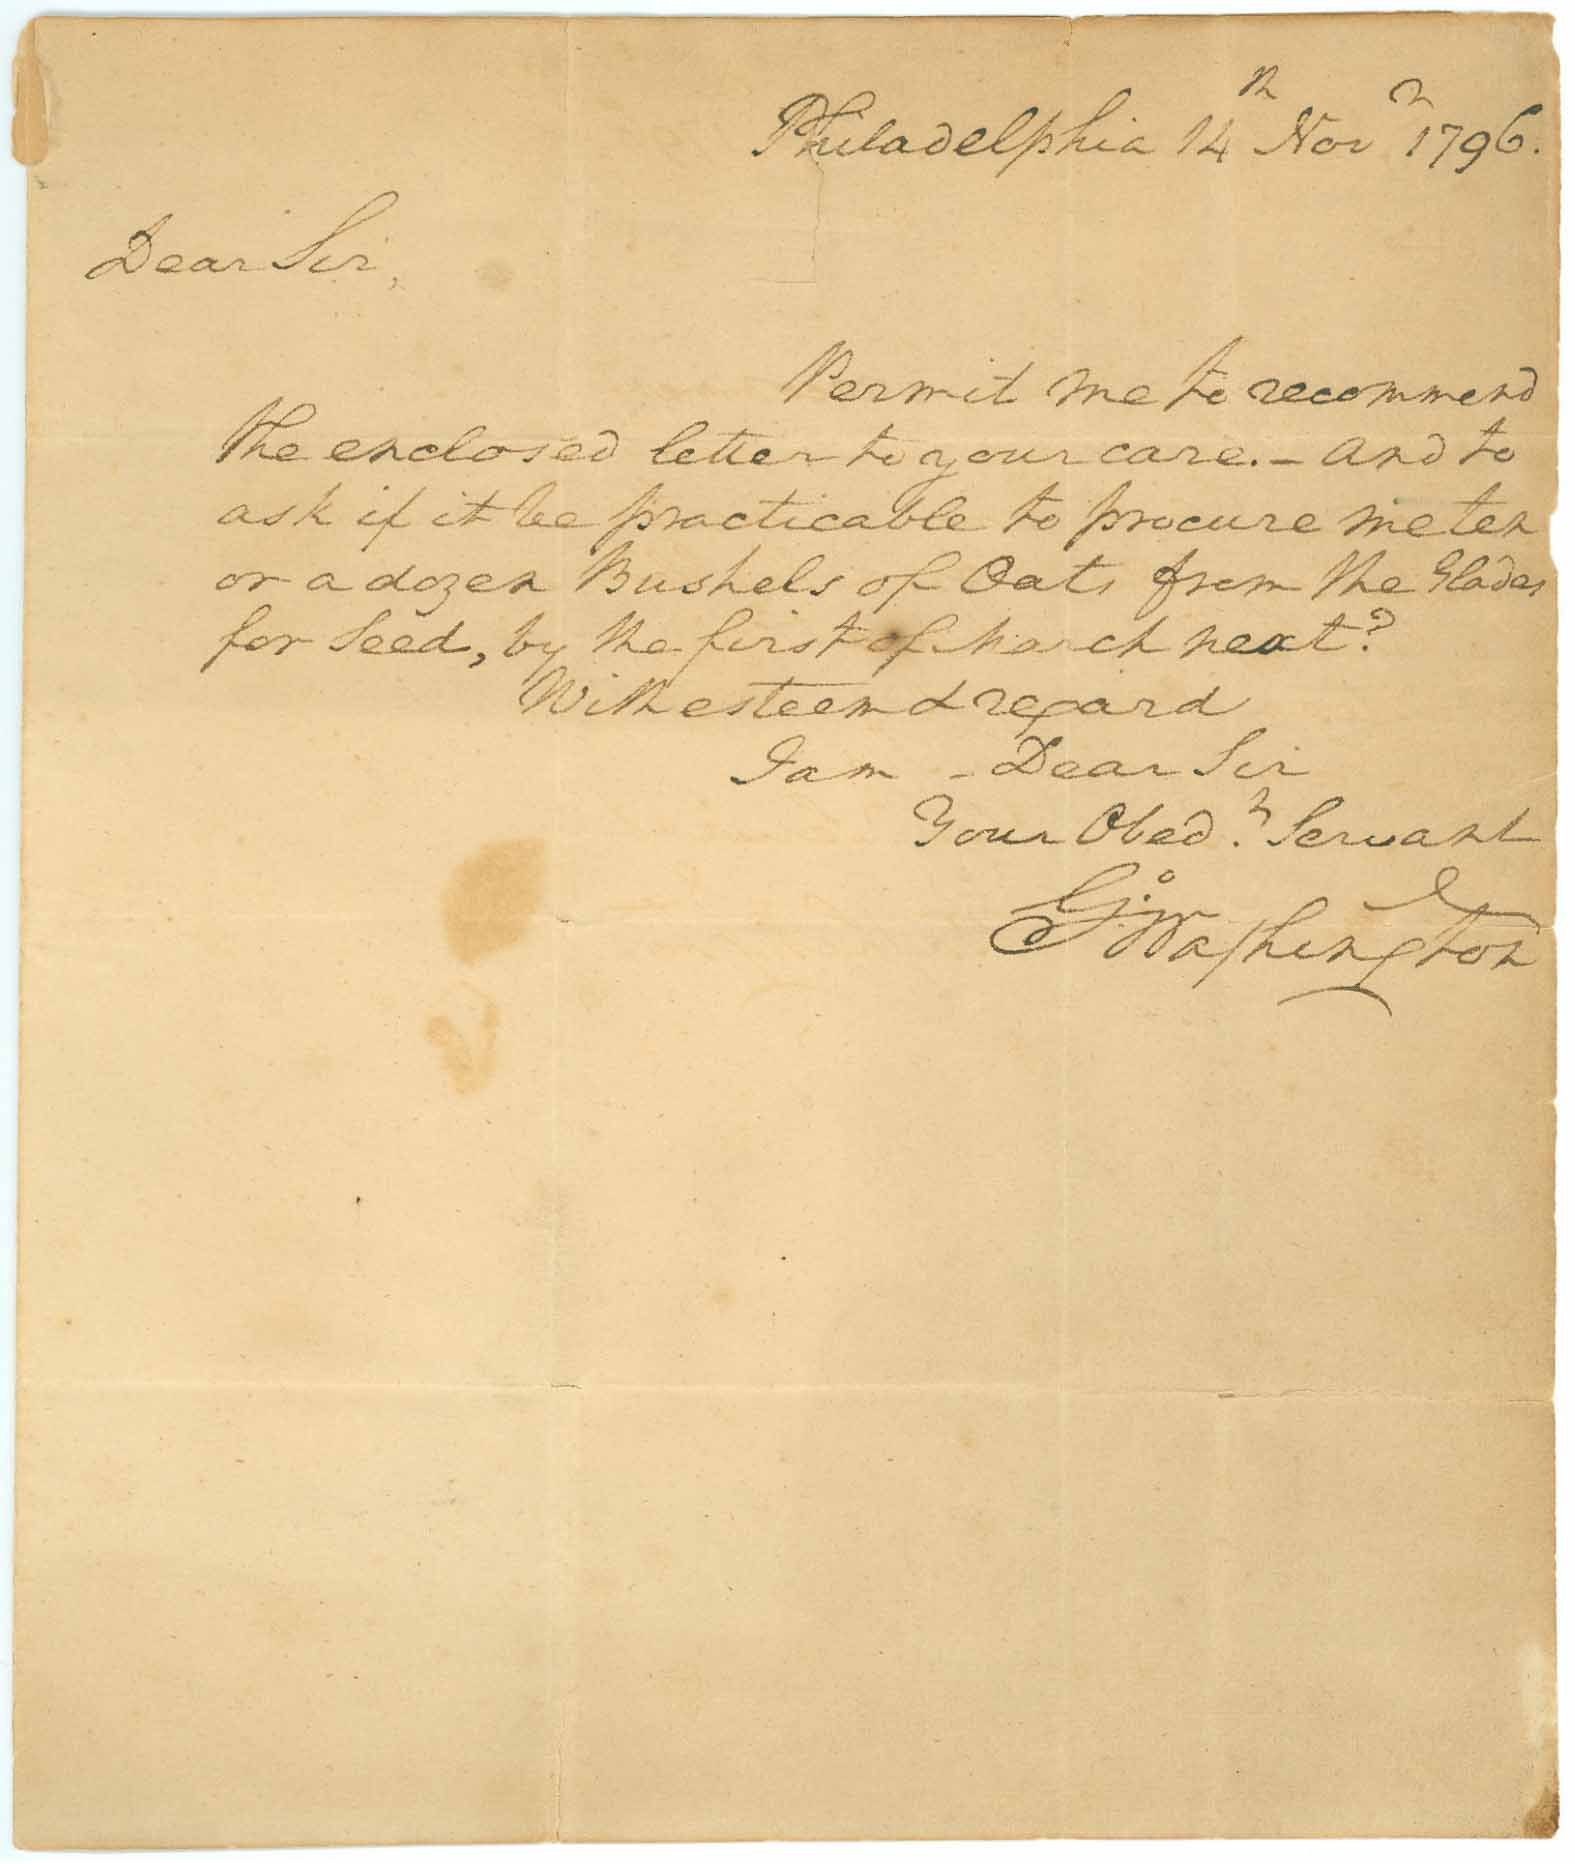 Philadelphia 14th Novr 1796.
Dear Sir,
Permit me to recommend
the enclosed letter to your care. – and to
ask if it be practicable to procure me ten
or a dozen Bushels of Oats from the Glades
for seed, by the first of March next?
With esteem & regard
I am – Dear Sir
Your Obedt Servant
Go: Washington